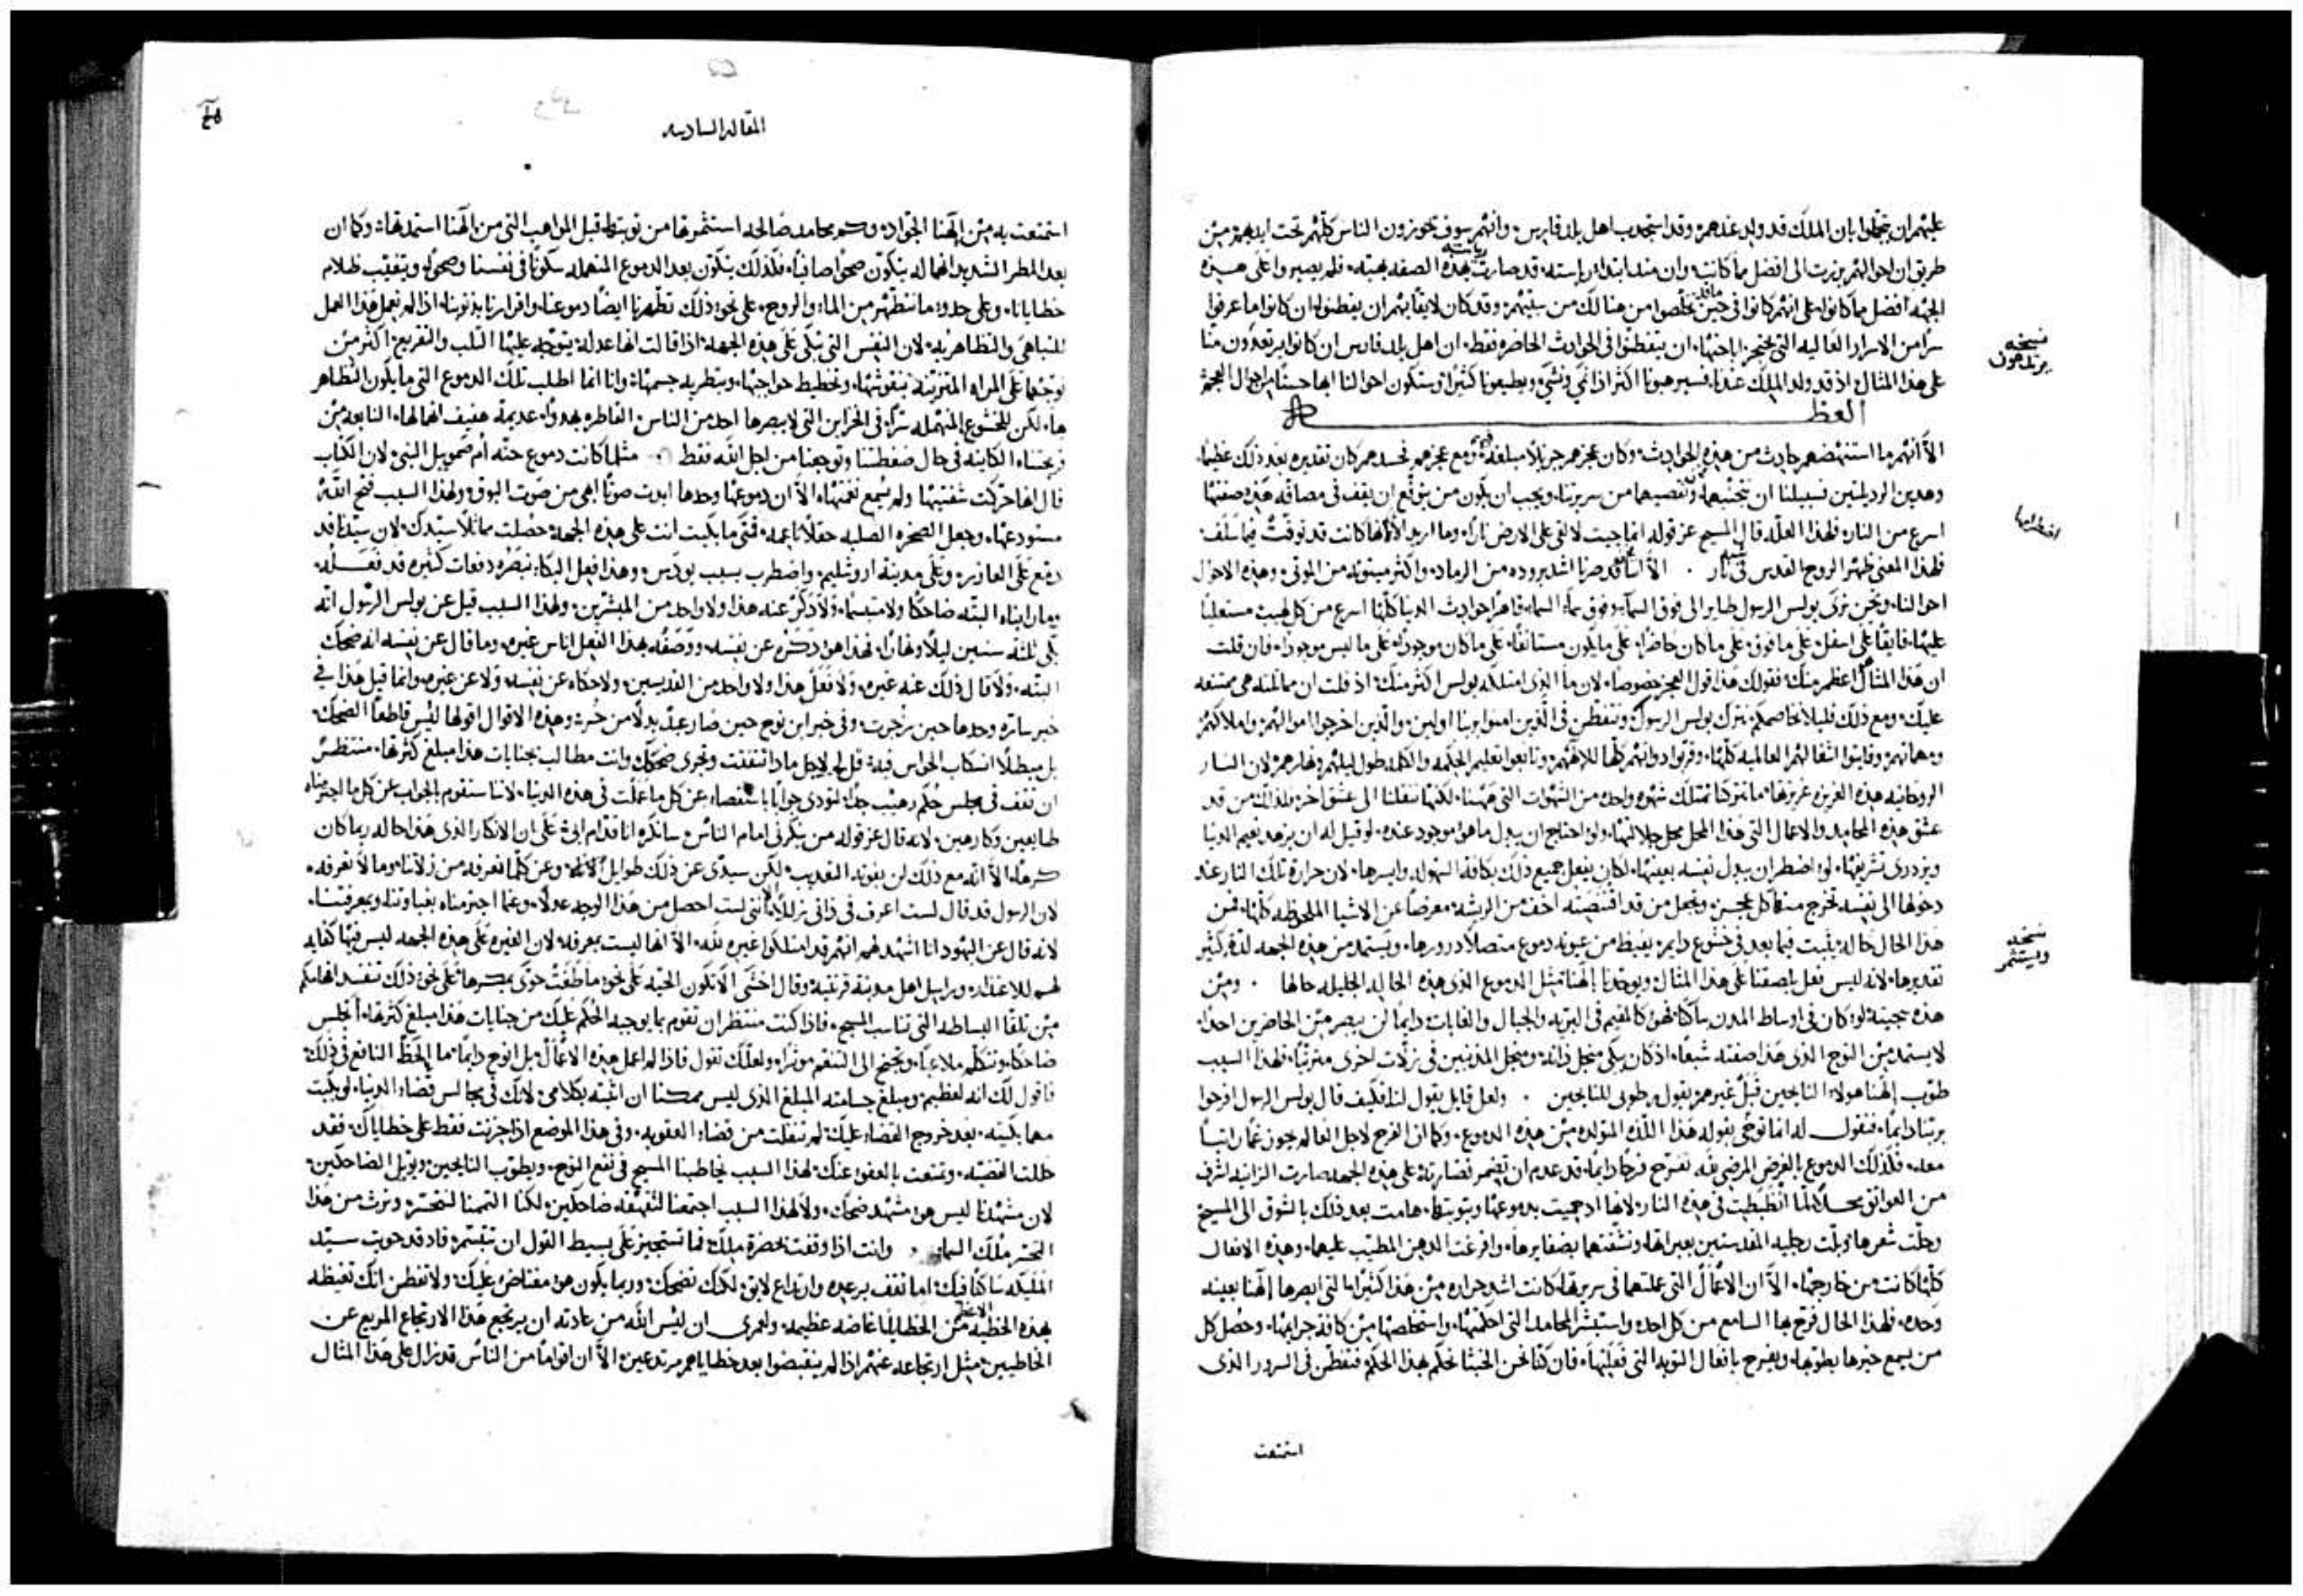 عليهم ان يتجملوا بان الملك قد ولد عندهم وقد استجدب اهل بلد فارس وانهم سوف يحوزون الناس كلهم تحت ايديهم من
طريق ان احوالهم برزت الى افضل ما كانت وان منذ ابتدا رياسته قد صارت هذه الصفه بهيته فلم يصيروا على هذه
الجهه افضل مما كانوا على انهم كانوا في حين تخلصوا من هنالك من سبيهم وقد كان لايقًا بهم ان يفطنوا ان كانوا ما عرفوا
سرًا من الاسرار العاليه التي ان يتفطنوا في الحوادث الحاضره فقط ان اهل بلد فارس ان كانوا يرتعدون منا
على هذا المثال اذ قد ولد الملك عندنا فسيرهبونا اكثر اذا نمي ونشي ويطيعونا كثيرًا وستكون احوالنا ابها حسنًا من احوال العجم
العظه
الا انهم ما استنهضهم حادث من هذه الحوادث وكان عجزهم جزيلًا مبلغه ومع عجزهم حسدهم كان تقديره بعد ذلك عظيمًا
وهذين الرديلتين فسبيلنا ان نتجنبهما ونقصيهما من سريرتنا ويجب ان يكون من يتوقع ان يقف في مصاف هذه صفتها
اسرع من النار فلهذا العله قال المسيح عز قوله انما جيت لالقي على الارض نارًا وما اريد الا انها كانت قد توقدت فيما سلف
فلهذا المعنى ظهر الروح القدس في نار الا اننا قد صرنا اشد بروده من الرماد واكثر ميتوته من الموتى وهذه الاحوال
احوالنا ونحن نرى بولس الرسول طايرا الى فوق السما وفوق سما السما قاهرًا حوادث الدنيا كلها اسرع من كل لهيب مستعليًا
عليها فايقًا على اسفل على ما فوق على ما كان حاضرًا على ما يكون مستانفًا على ما كان موجودًا على ما ليس موجودًا فان قلت
ان هذا المثال اعظم منك فقولك هذا قول العجز خصوصًا لان ما الذي امتلكه بولس اكثر منك اذ قلت ان مماثلته هي ممتنعه
عليك ومع ذلك فليلا نخاصمكم نترك بولس الرسول ونتفطن في الذين امنوا بربنا اولين والذين اخرجوا اموالهم واملاكهم
الروحانيه هذه الغريزه غريزتها ما تتركنا نمتلك شهوه واحده من الشهوات التي ههنا لكنها تنقلنا الى عشق اخر فلذلك من قد
عشق هذه المحامد والاعمال التي هذا المحل محل جلالتها ولو احتاج ان يبدل ما هو موجود عنده لو قيل له ان يزهد نعيم الدنيا
ويزدري تشريفها لو اضطر ان يبدل نفسه بعينها لكان يفعل جميع ذلك بكافة السهوله وايسرها لان حرارة تلك النار عند
دخولها الى نفسه تخرج منها كل عجز وتجعل من قد اقتنصته اخف من الريشه معرضًا عن الاشيا الملحوظه كلها فمن
هذا الحال حاله يثبت فيما بعد في خشوع دايم يفيظ من عيونه دموع متصلًا درورها ويستمد من هذه الجهه لذه كثير
تقديرها لانه ليس فعل يلصقنا على هذا المثال ويوحدنا بالهنا مثل الدموع الذي هذه الحال الجليله حالها ومن
هذه سجيته لو كان في اوساط المدن ساكنًا فهو كالمقيم في البريه والجبال والغابات دايمًا لن يبصر من الحاضرين احدًا
لا يستمد من النوح الذي هذا صفته شبعًا اذ كان يبكي من اجل ذاته ومن اجل المذنبين في زلات اخرى متربًا فلهذا السبب
طوب الهنا هولاء النايحين قبل غيرهم بقوله طوبى للنايحين ولعل قايل يقول لنا فكيف قال بولس الرسول افرحوا
بربنا دايمًا فنقول له انما نوخى بقوله هذا اللذه المتولده من هذه الدموع وكما ان الفرح لاجل العالم يحوز غمًا راتبًا
معه فلذلك الدموع بالغرض المرضي لله تفرح فرحًا دايمًا قد عدم ان يضمر نضارته على هذه الجهه صارت الزانيه اشرف
من العواتق محلًا لما انظبطت في هذه النار لانها اذ حميت بدموعها وبتوبتها هامت بعد ذلك بالشوق الى المسيح
وحلت شعرها وبلت رجليه المقدستين بعبراتها ونشفتهما بضفايرها وافرغت الدهن المطيب عليهما وهذه الافعال
كلها كانت من خارجها الا ان الاعمال التي عملتها في سريرتها كانت اشد حراره من هذا كثيرًا التي ابصرها الهنا بعينه
وحده فلهذا الحال فرح بها السامع من كل احد واستبشر بالمحامد التي احكمتها واستخلصها من كافة جرايمها وحصل كل
من يسمع خبرها يطوبها ويفرح بافعال التوبه التي فعلتها فان كنا نحن الخبثا نحكم بهذا الحكم فتفطن في السرور الذي
استمتعت
نسخه
يرتاعون
اضطرامها
نسخه
ويستثمر
المقاله السادسه
استمتعت به من الهنا الجواده وكم محامد صالحه استثمرتها من توبتها قبل المواهب التي من الهنا استمدتها وكما ان
بعد المطر الشديد انهماله يتكون صحوًا صافيًا فكذلك يتكون بعد الدموع المنهمله سكونًا في نفسنا وصحوًا ويتغيب ظلام
خطايانا وعلى حدو ما نتطهر من الماء والروح على نحو ذلك تطهرنا ايضًا دموعنا واقرارنا بذنوبنا اذا لم نعمل هذا العمل
للتباهي والتظاهر به لان النفس التي تبكي على هذه الجهه اذا قالت انها عدله يتوجه عليها الثلب والتقريع اكثر من
توجهها على المراه المتزينه بنقوشها وتخطيط حواجبها وبتطريه جسمها وانا انما اطلب تلك الدموع التي ما يكون التظاهر
بها لكن للخشوع المنهمله سرًا في الخزاين التي لا يبصرها احد من الناس القاطره بهدوًا عديمة حفيف انهمالها النابعه من
الكاينه في حال ضغطتنا وتوجعنا من اجل الله فقط مثلما كانت دموع حنه ام صمويل النبي لان الكتاب
قال انها حركت شفتيها ولم يسمع نغمتها الا ان دموعها وحدها ابدت صوتًا ابهى من صوت البوق ولهذا السبب فتح الله
مستودعها وجعل الصخره الصلبه حقلًا ناعمه فمتى ما بكيت انت على هذه الجهه حصلت مماثلًا سيدك لان سيدنا قد
دمع على العازر وعلى مدينة اروشليم واضطرب بسبب يودس وهذا فعل البكاء تبصره دفعات كثيره قد فعله
وما راينا البته ضاحكًا ولا متبسمًا ولا ذكر عنه هذا ولا واحد من المبشرين ولهذا السبب قيل عن بولس الرسول انه
بكى ثلثة سنين ليلًا ونهارًا فهذا هو ذكره عن نفسه ووصفه بهذا الفعل اناس غيره وما قال عن نفسه انه ضحك
البته ولا قال ذلك عنه غيره ولا فعل هذا ولا واحد من القديسين ولا حكاه عن نفسه ولا عن غيره وانما قيل هذا في
خبر ساره وحدها حين زجرت وفي خبر ابن نوح حين صار عبدًا بدلًا من حر وهذه الاقوال اقولها ليس قاطعًا الضحك
بل مبطلًا انسكاب الحواس فيه قل لي لاجل ماذا تتفتت وتجري ضحكك وانت مطالب بجنايات هذا مبلغ كثرتها منتظر
ان تقف في مجلس حكم رهيب جدًا لتودي جوابًا باستقصاء عن كل ما عملت في هذه الدنيا لاننا سنقوم بالجواب عن كل ما اجترمناه
طايعين وكارهين لانه قال عز قوله من ينكرني امام الناس سانكره انا قدام ابي على ان الانكار الذي هذا حاله ربما كان
كرهًا الا انه مع ذلك لن يفوته التعذيب لكن سيدى عن ذلك طوايل الاثم وعن كلما نعرفه من زلاتنا وما لا نعرفه
لان الرسول قد قال لست اعرف في ذاتي زله لكنني لست احصل من هذا الوجه عدلًا وعما اجترمناه بغباوتنا وبمعرفتنا
لانه قال عن اليهود انا اشهد لهم انهم قد امتلكوا غيره لله الا انها ليست بمعرفه لان الغيره على هذه الجهه ليس فيها كفايه
لهم للاعتذار وراسل اهل مدينة قرنتيه وقال اخشى الا تكون الحيه على نحو ما طغت حوى بمكرها على نحو ذلك تفسد افهامكم
من تلقا البساطه التي تناسب المسيح فاذا كنت منتظر ان تقوم بما يوجبه الحكم عليك من جنايات هذا مبلغ كثرتها اتجلس
ضاحكًا وتتكلم ملاعبًا وتجنح الى التنعم موثرًا ولعلك تقول فاذا لم اعمل هذه الاعمال بل انوح دايمًا ما الحظ النافع في ذلك
فاقول لك انه لعظيم ومبلغ جسامته المبلغ الذي ليس ممكنا ان اثبته بكلامي لانك في مجالس قضاء الدنيا لو بكيت
مهما بكيته بعد خروج القضاء عليك لم تنفلت من قضاء العقوبه وفي هذا الموضع اذا حزنت فقط على خطاياك فقد
حللت القضيه وتمتعت بالعفو عنك لهذا السبب يخاطبنا المسيح في نفع النوح ويطوب النايحين ويويل الضاحكين
لان مشهدنا ليس هو مشهد ضحك ولا لهذا السبب اجتمعنا لنقهقه ضاحكين لكنا التممنا لنتحسر ونرث من هذا
التحسر ملك السما وانت اذا وقفت بحضرة ملك فما تستجيز على بسيط القول ان تتبسم فاذ قد حويت سيد
الملايكه ساكنًا فيك اما تقف برعده وارتداع لايق لكنك تضحك وربما يكون هو مغتاض عليك ولا تفطن انك تغيظه
بهذه الخطيه من الخطايا غاضه عظيمه ولعمري ان ليس الله من عادته ان يرتجع هذا الارتجاع المريع عن
الخاطيين مثل ارتجاعه عنهم اذا لم ينقبضوا بعد خطاياهم مرتدعين الا ان اقوامًا من الناس قد نزال على هذا المثال